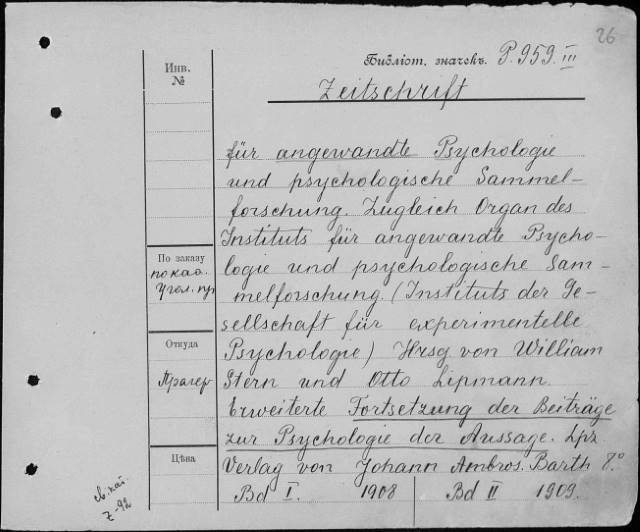 26
Библіот. значекъ. P. 959 III
Zeitschrift
für angewandte Psychologie
und psychologische Sammel-
forschung. Zugleich Organ des
Instituts für angewandte Psycho-
logie und psychologische Sam-
melforschung. (Instituts der Ge-
sellschaft für experimentelle
Psychologie) Hrsg von William
Stern und Otto Lipmann.
Erweiterte Fortsetzung der Beiträge
zur Psychologie der Aussage. Lpz
Verlag von Johann Ambros. Barth 8.º
Bd I. 1908 Bd II 1909.
Инв.
№
По заказу
по каа.
Угол. пр
Откуда
Прагер
Цѣна
св. кат.
Z-92